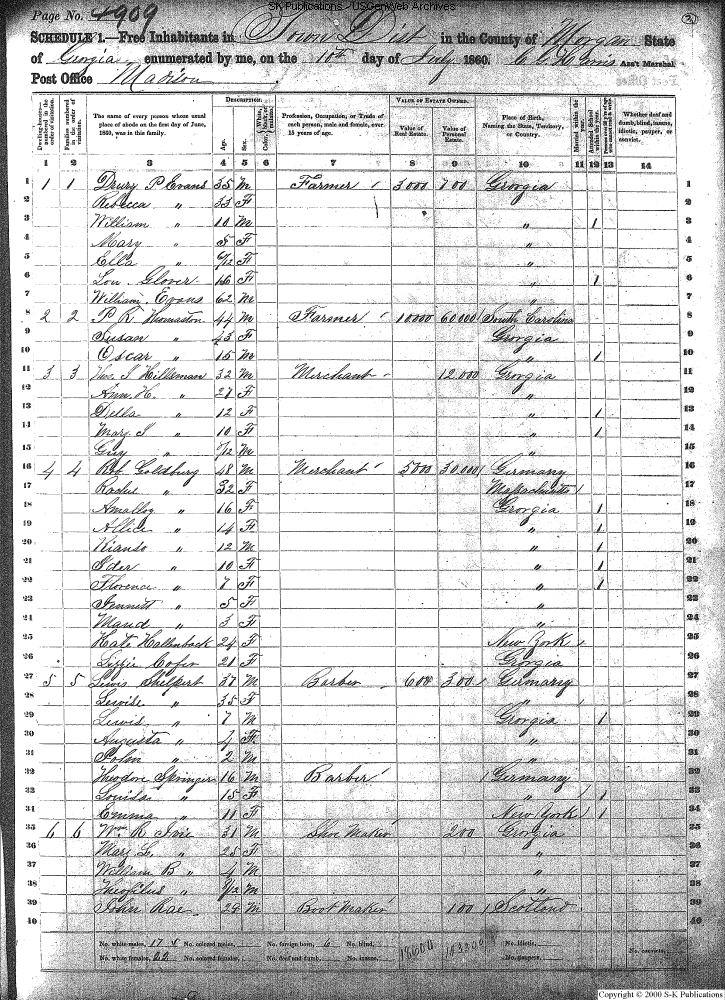 SK Publications - USGenWeb Archives
Page No. 4909
SCHEDULE 1.—Free Inhabitants in Town Dist in the County of Morgan State
of Georgia enumerated by me, on the 10th day of July 1860. Ass't Marshal
Post Office Madison
Dwelling-houses—numbered in the order of visitation.
Families numbered in the order of visitation.
The name of every person whose usual place of abode on the first day of June, 1860, was in this family.
DESCRIPTION.
Age.
Sex.
Color, White, black, or mulatto.
Profession, Occupation, or Trade of each person, male and female, over 15 years of age.
VALUE OF ESTATE OWNED.
Value of Real Estate.
Value of Personal Estate.
Place of Birth, Naming the State, Territory, or Country.
Married within the year.
Attended School within the year.
Whether deaf and dumb, blind, insane, idiotic, pauper, or convict.
1 2 3 4 5 6 7 8 9 10 11 12 13 14
1 1 1 Drury P Evans 35 M Farmer 3000 700 Georgia 1
2 Rebecca " 33 F " 2
3 William " 10 M " 1 3
4 Mary " 5 F " 4
5 Ella " 6/12 F " 5
6 Lou Glover 16 F " 1 6
7 William Evans 62 M " 7
8 2 2 P. R. Thomaston 44 M Farmer 10000 60000 South Carolina 8
9 Susan " 43 F Georgia 9
10 Oscar " 15 M " 1 10
11 3 3 J Hillsman 32 M Merchant 12.000 Georgia 11
12 Ann H. " 27 F " 12
13 Della " 12 F " 1 13
14 Mary J " 10 F " 1 14
15 Guy " /12 M " 15
16 4 4 Rob Goldburg 48 M Merchant 5000 30,000 Germany 16
17 Rachel " 32 F Massachusetts 17
18 " 16 F Georgia 1 18
19 Allice " 14 F " 1 19
20 " 12 M " 1 20
21 " 10 F " 1 21
22 Florence " 7 F " 1 22
23 Jennett " 5 F " 23
24 Maud " 3 F " 24
25 Kate Hallenback 24 F New York 25
26 Lizzie Cofer 21 F Georgia 26
27 5 5 Lewis 37 M Barber 600 300 Germany 27
28 Lewise " 35 F " 28
29 Lewis " 7 M Georgia 1 29
30 Augusta " 4 F " 30
31 John " 2 M " 31
32 Theodore Springer 16 M Barber Germany 32
33 Louisa " 15 F " 1 33
34 Emma " 11 F New York 1 34
35 6 6 Wm R Ivie 31 M Shoe Maker 200 Georgia 35
36 Mary L. " 25 F " 36
37 William B " 4 M " 37
38 Theofilus " /12 M " 38
39 John Rae 29 M Boot Maker 100 Scotland 39
40 40
No. white males, 17 No. colored males, No. foreign born, 6 No. blind, 18600 No. idiotic,
No. white females, 22 No. colored females, No. deaf and dumb, No. insane, No. paupers, No. convicts,
Copyright © 2000 S-K Publications